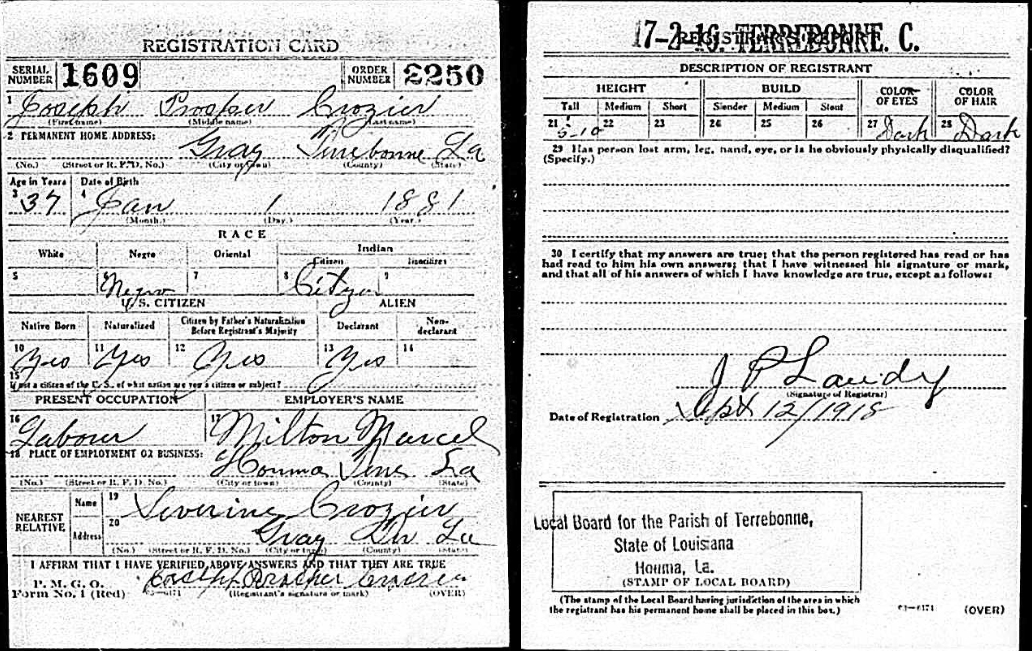 REGISTRATION CARD
SERIAL NUMBER 1609 ORDER NUMBER 2250
1 Joseph Prosper Crozier
(First name) (Middle name) (Last name)
2 PERMANENT HOME ADDRESS:
Gray Terrebonne La
(No.) (Street or R. F. D. No.) (City or town) (County) (State)
Age in Years Date of Birth
3 37 4 Jan 1 1881
(Month.) (Day.) (Year.)
RACE
White Negro Oriental Indian
Citizen Noncitizen
5 6 Negro 7 8 Citzen 9
U.S. CITIZEN ALIEN
Native Born Naturalized Citizen by Father's Naturalization Before Registrant's Majority Declarant Non-declarant
10 Yes 11 Yes 12 Yes 13 Yes 14
15
If not a citizen of the U. S., of what nation are you a citizen or subject?
PRESENT OCCUPATION EMPLOYER'S NAME
16 Labour 17 Milton Marcel
18 PLACE OF EMPLOYMENT OR BUSINESS:
Houma Terre La
(No.) (Street or R. F. D. No.) (City or town) (County) (State)
NEAREST RELATIVE Name 19 Severine Crozier
Address 20 Gray La
(No.) (Street or R. F. D. No.) (City or town) (County) (State)
I AFFIRM THAT I HAVE VERIFIED ABOVE ANSWERS AND THAT THEY ARE TRUE
P. M. G. O.
Form No. 1 (Red) 03—6171 Joseph Prosper Crozier
(Registrant's signature or mark) (OVER)
REGISTRAR'S REPORT
17-2-16. TERREBONNE. C.
DESCRIPTION OF REGISTRANT
HEIGHT BUILD COLOR OF EYES COLOR OF HAIR
Tall Medium Short Slender Medium Stout
21 5-10 22 23 24 25 26 27 Dark 28 Dark
29 Has person lost arm, leg, hand, eye, or is he obviously physically disqualified?
(Specify.)
30 I certify that my answers are true; that the person registered has read or has
had read to him his own answers; that I have witnessed his signature or mark,
and that all of his answers of which I have knowledge are true, except as follows:
J P Landy
(Signature of Registrar)
Date of Registration Sept 12/1918
Local Board for the Parish of Terrebonne,
State of Louisiana
Houma, La.
(STAMP OF LOCAL BOARD)
(The stamp of the Local Board having jurisdiction of the area in which
the registrant has his permanent home shall be placed in this box.)
03—6171 (OVER)